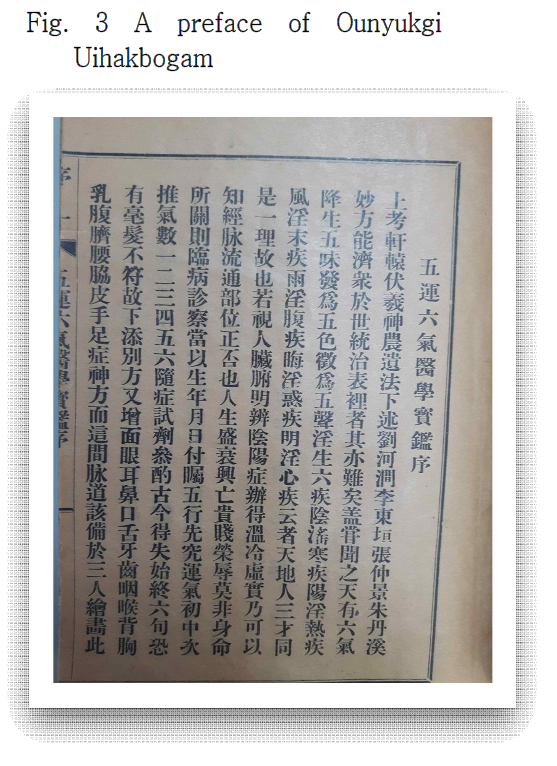 Fig. 3 A preface of Ounyukgi
Uihakbogam
五運六氣醫學寶鑑序
上考軒轅伏羲神農遺法下述劉河澗李東垣張仲景朱丹溪
妙方能濟衆於世統治表裡者其亦難矣盖甞聞之天有六氣
降生五味發爲五色徵爲五聲淫生六疾陰淫寒疾陽淫熱疾
風淫末疾雨淫腹疾晦淫惑疾明淫心疾云者天地人三才同
是一理故也若視人臟腑明辨陰陽症辦得溫冷虛實乃可以
知經脉流通部位正否也人生盛衰興亡貴賤榮辱莫非身命
所關則臨病診察當以生年月日付囑五行先究運氣初中次
推氣數一二三四五六隨症試劑叅酌古今得失始終六旬恐
有毫髮不符故下添別方又增面眼耳鼻口舌牙齒咽喉背胸
乳腹臍腰脇皮手足症神方而這間脉道該備於三人繪畵此
五運六氣醫學寶鑑序
序 一